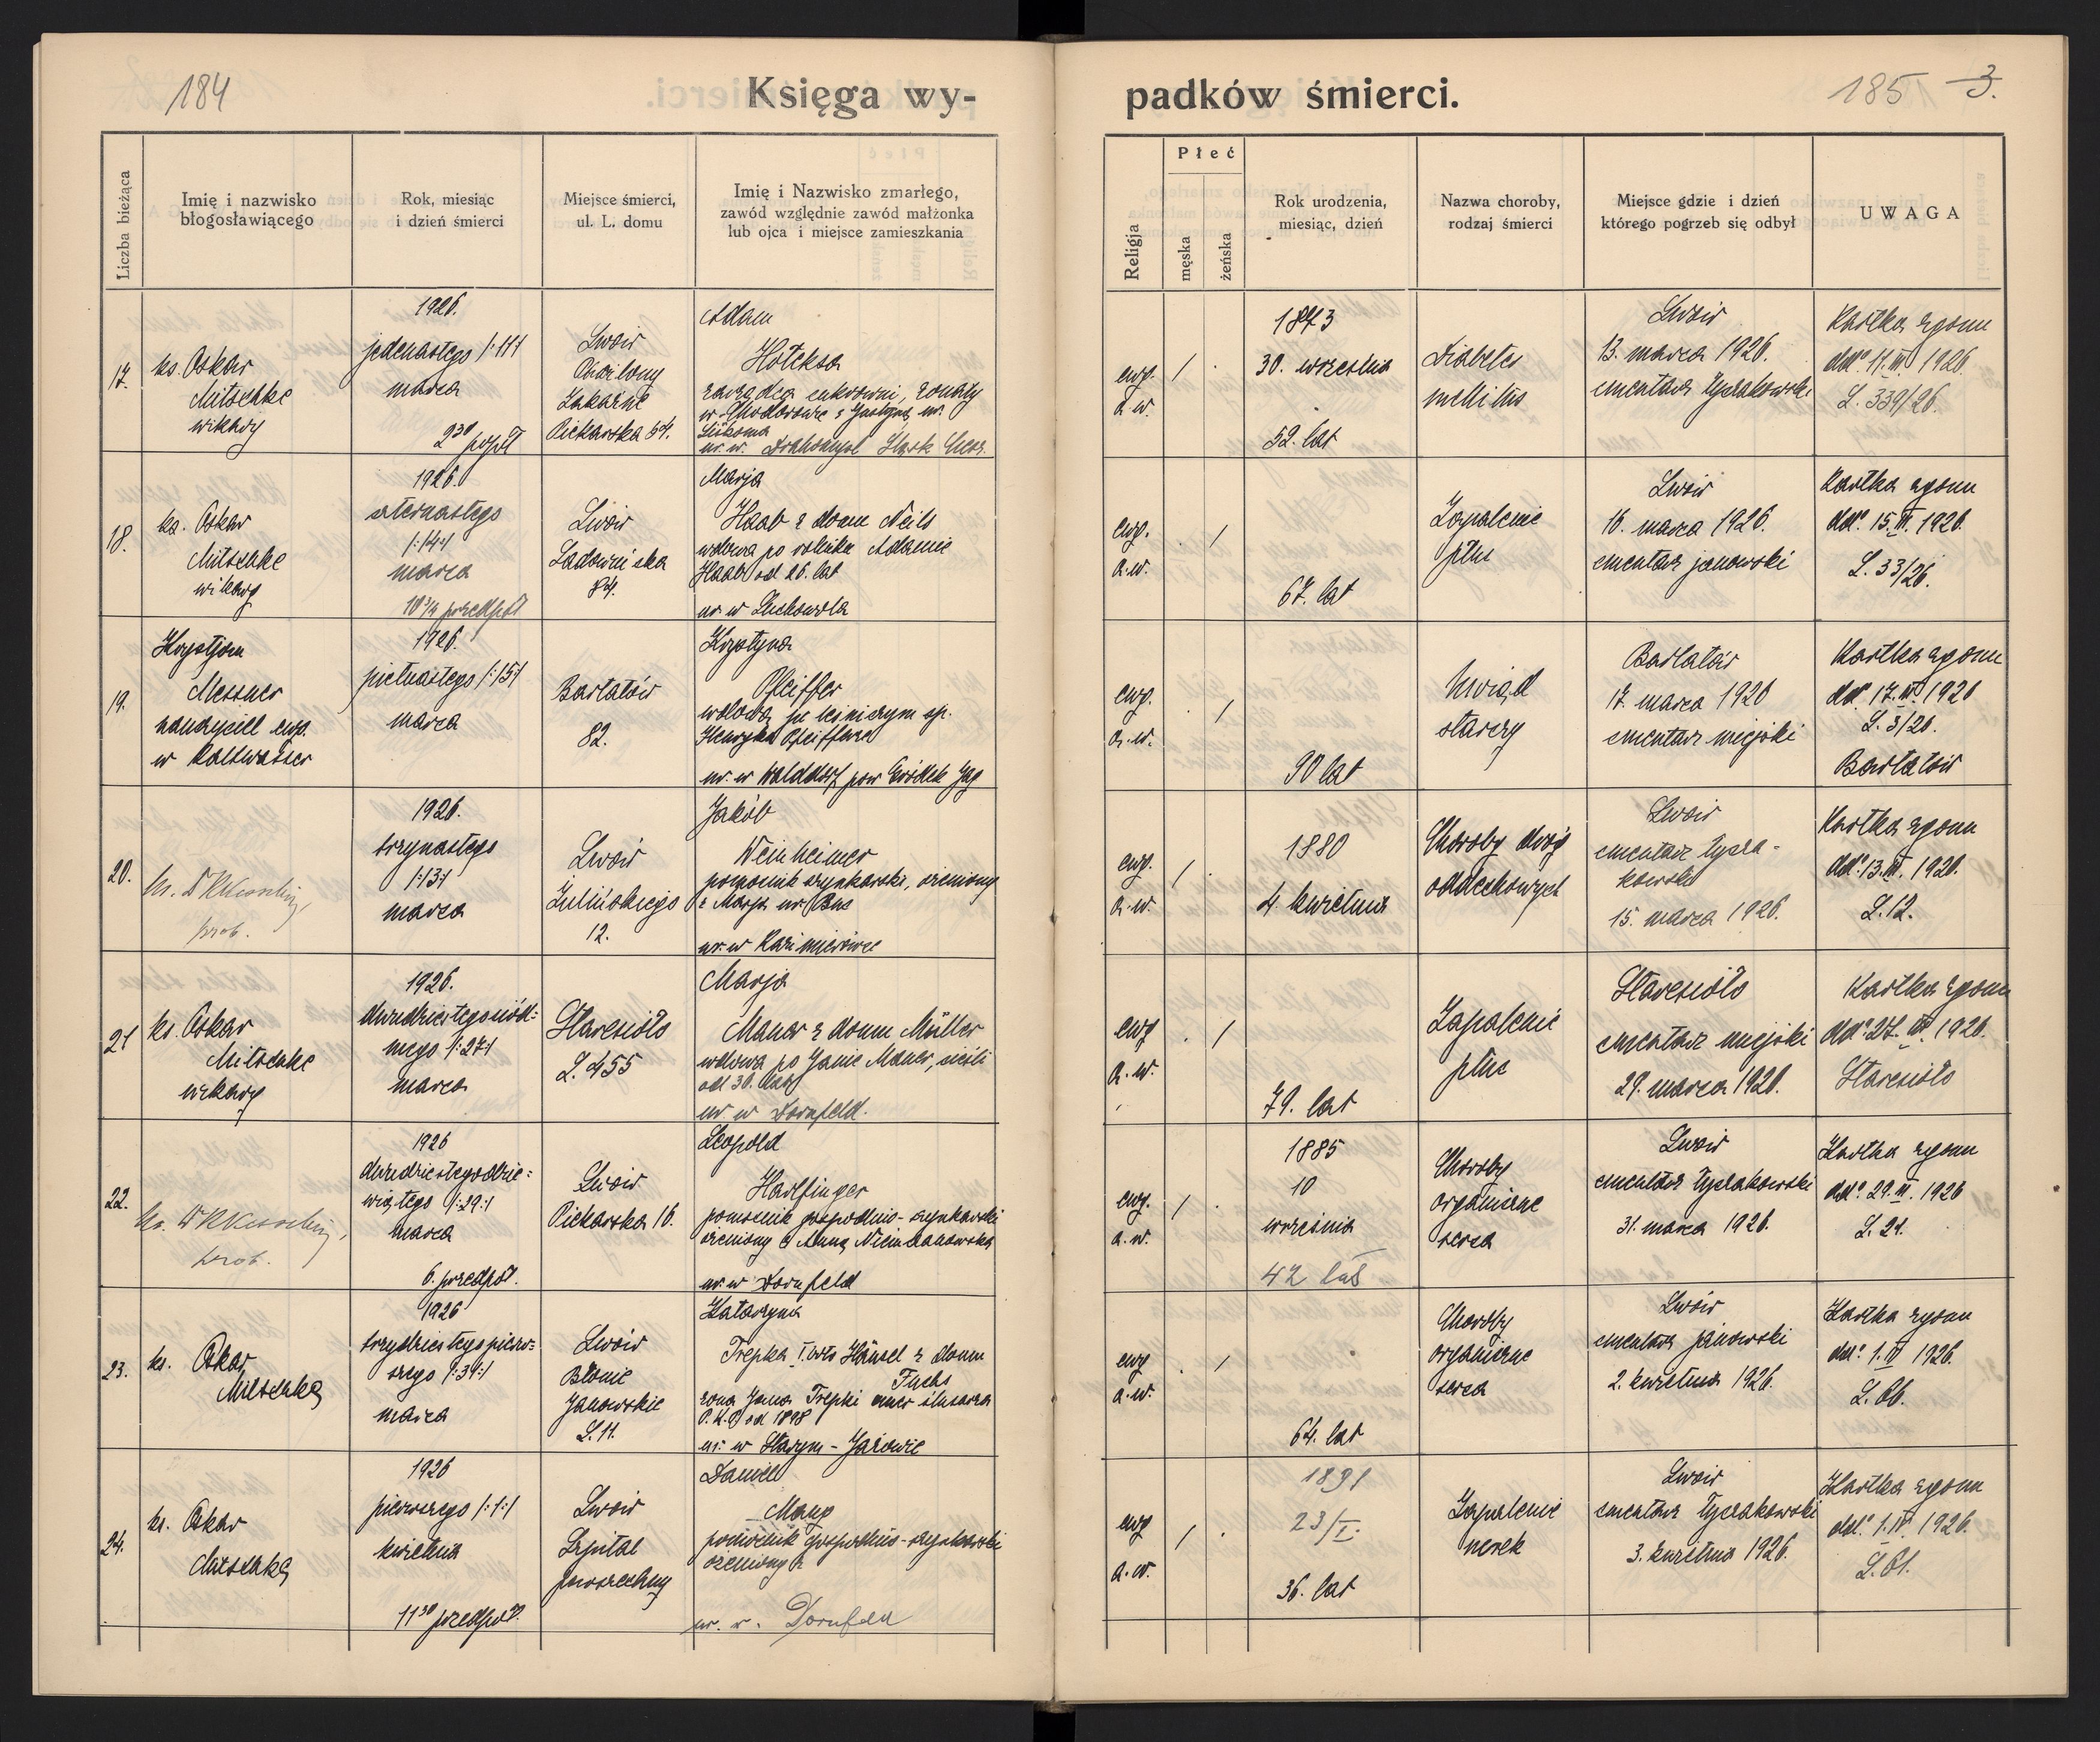 184
Księga wy-
padków śmierci.
185 3.
Liczba bieżąca
Imię i nazwisko
błogosławiącego
Rok, miesiąc
i dzień śmierci
Miejsce śmierci,
ul. L. domu
Imię i Nazwisko zmarłego,
zawód względnie zawód małżonka
lub ojca i miejsce zamieszkania
Religja
Płeć
męska
żeńska
Rok urodzenia,
miesiąc, dzień
Nazwa choroby,
rodzaj śmierci
Miejsce gdzie i dzień
którego pogrzeb się odbył
UWAGA
17.
ks. Oskar
Mitschke
wikary
1926.
jedenastego /:11:/
marca
2³⁰ popoł
Lwów
Piekarska 54.
Adam
Hoteksa
zarządca cukrowni, żonaty
w Chodorowie z Justyną ur.
ur. w.
ewg.
a.w.
/
1873
30. września
52. lat
Diabetes
mellitus
Lwów
13. marca 1926.
cmentarz Łyczakowski
Kartka zgonu
ddo 11.III. 1926.
L. 339/26.
18.
ks. Oskar
Mitschke
wikary
1926.
czternastego
/:14:/
marca
10¾ przedpoł.
Lwów
84.
Marja
Haab z domu Neils
wdowa po rolniku Adamie
Haab od 26. lat
ur w
ewg.
a.w.
/
67. lat
Zapalenie
płuc
Lwów
16. marca 1926.
cmentarz janowski
Kartka zgonu
ddo. 15.III. 1926.
L. 33/26.
19.
Krystjan
Messner
nauczyciel ewg.
w Kaltwasser
1926.
piętnastego /:15:/
marca
Bartatów
82.
Krystyna
Pfeiffer
wdowa po leśniczym śp.
Henryku Pfeifferze
ur. w Walddorf pow Gródek Jag
ewg.
a.w.
/
90 lat
Uwiąd
starczy
Bartatów
17. marca 1926
cmentarz miejski
Kartka zgonu
ddo. 17.III. 1926
L. 3/26.
Bartatów
20.
ks. Dr Kesselring,
prob.
1926.
trzynastego
/:13:/
marca
Lwów
Zulińskiego
12.
Jakób
Weinheimer
pomocnik szynkarski, żeniony
z Marją ur.
ur. w Kazimierówce
ewg.
a.w.
/
1880
4. kwietnia
Choroby dróg
oddechowych
Lwów
cmentarz Łycza-
kowski
15. marca 1926.
Kartka zgonu
ddo. 13.III. 1926.
L. 12.
21
ks. Oskar
Mitschke
wikary
1926.
dwudziestegosiód=
mego /:27:/
marca
Staresioło
L. 455
Marja
Mauer z domu Müller
wdowa po Janie Mauer, cieśli
od 30. lat
ur. w Dornfeld.
ewg
a.w.
/
79. lat
Zapalenie
płuc
Staresioło
cmentarz miejski
29. marca 1926.
Kartka zgonu
ddo. 27.III. 1926.
Staresioło
22.
ks. Dr Kesselring,
prob.
1926
dwudziestegodzie=
wiątego /:29:/
marca
6. przedpoł.
Lwów
Piekarska 16.
Leopold
Harlfinger
pomocnik gospodnio-szynkarski
żeniony z Anną
ur. w Dornfeld
ewg.
a.w.
/
1885
10
września
42 lat
Choroby
organiczne
serca
Lwów
cmentarz Łyczakowski
31. marca 1926.
Kartka zgonu
ddo. 29.III. 1926
L. 21.
23.
ks. Oskar
Mitschke
1926
trzydziestegopierw=
szego /:31:/
marca
Lwów
Błonie
Janowskie
L. 11.
Katarzyna
Trepka I. voto Hänsel z domu
Fuchs
żona Jana Trepki emer ślusarza
P.K.P. od 1898
ur. w Starym-Jażowie
ewg
a.w.
/
64. lat
Choroby
organiczne
serca
Lwów
cmentarz janowski
2. kwietnia 1926.
Kartka zgonu
ddo. 1.IV 1926.
24.
ks. Oskar
Mitschke
1926
pierwszego /:1:/
kwietnia
11³⁰ przedpoł.
Lwów
Szpital
powszechny
Daniel
Manz
pomocnik gospodnio-szynkarski
żeniony z
ur. w. Dornfeld
ewg
a.w.
/
1891
23/I.
36. lat
Zapalenie
nerek
Lwów
cmentarz Łyczakowski
3. kwietnia 1926.
Kartka zgonu
ddo. 1.IV. 1926.